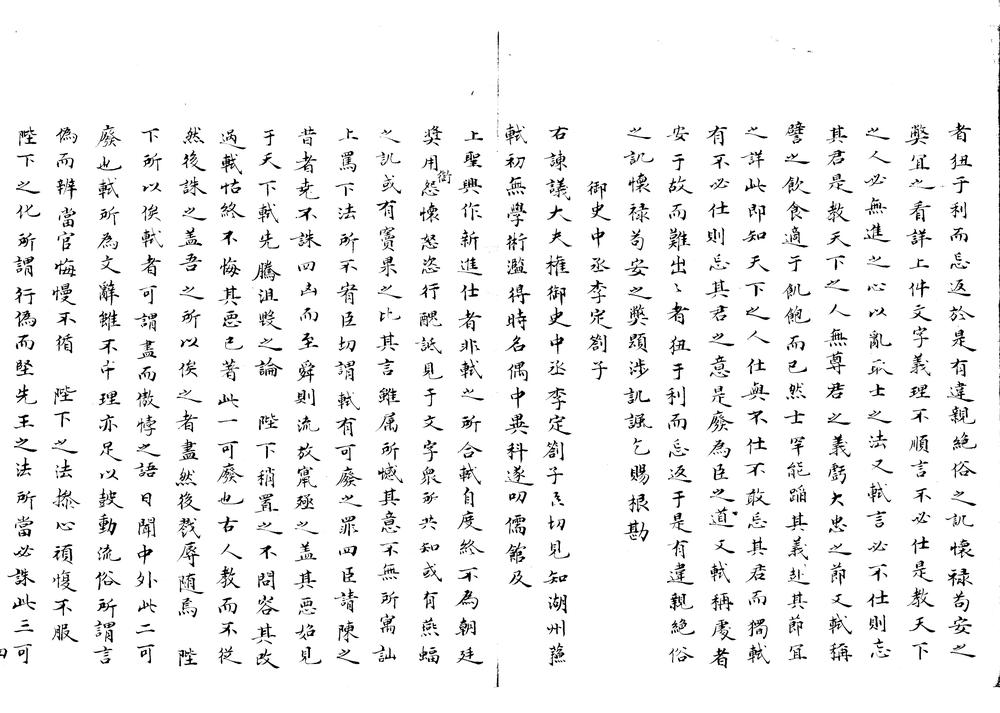 者狃于利而忘返於是有違親絕俗之訊懷祿苟安之
獘宜之看詳上件文字義理不順言不必仕是教天下
之人必無進之心以亂取士之法又軾言必不仕則忘
其君是教天下之人無尊君之義虧大忠之節又軾稱
譬之飲食適于飢飽而已然士罕能蹈其義赴其節宜
之詳此即知天下之人仕與不仕不敢忘其君而獨軾
有不必仕則忘其君之意是廢為臣之道又軾稱處者
安于故而難出〻者狃于利而忘返于是有違親絕俗
之訊懷祿苟安之獘顯涉訊諷乞賜根勘
御史中丞李定劄子
右諫議大夫權御史中丞李定劄子言切見知湖州蘓
軾初無學術濫得時名偶中異科遂叨儒館及
上聖興作新進仕者非軾之所合軾自度終不為朝廷
奬用怨懷怒恣行醜詆見于文字衆所共知或有燕蝠
銜
之訊或有竇梁之比其言雖属所憾其意不無所寓訕
上罵下法所不宥臣切謂軾有可廢之罪四臣請陳之
昔者堯不誅四凶而至舜則流放竄殛之盖其惡始見
于天下軾先騰沮毀之論 陛下稍置之不問容其改
過軾怙終不悔其惡已著此一可廢也古人教而不從
然後誅之盖吾之所以俟之者盡然後戮辱随焉 陛
下所以俟軾者可謂盡而傲悖之語日聞中外此二可
廢也軾所為文辭雖不中理亦足以鼓動流俗所謂言
偽而辨當官悔慢不循 陛下之法操心頑愎不服
陛下之化所謂行偽而堅先王之法所當必誅此三可